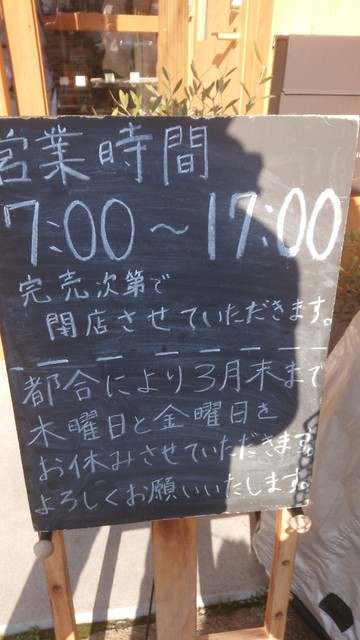 営業時間
7:00〜17:00
完売次第で
閉店させていただきます。
都合により3月末まで
木曜日と金曜日を
お休みさせていただきます。
よろしくお願いいたします。